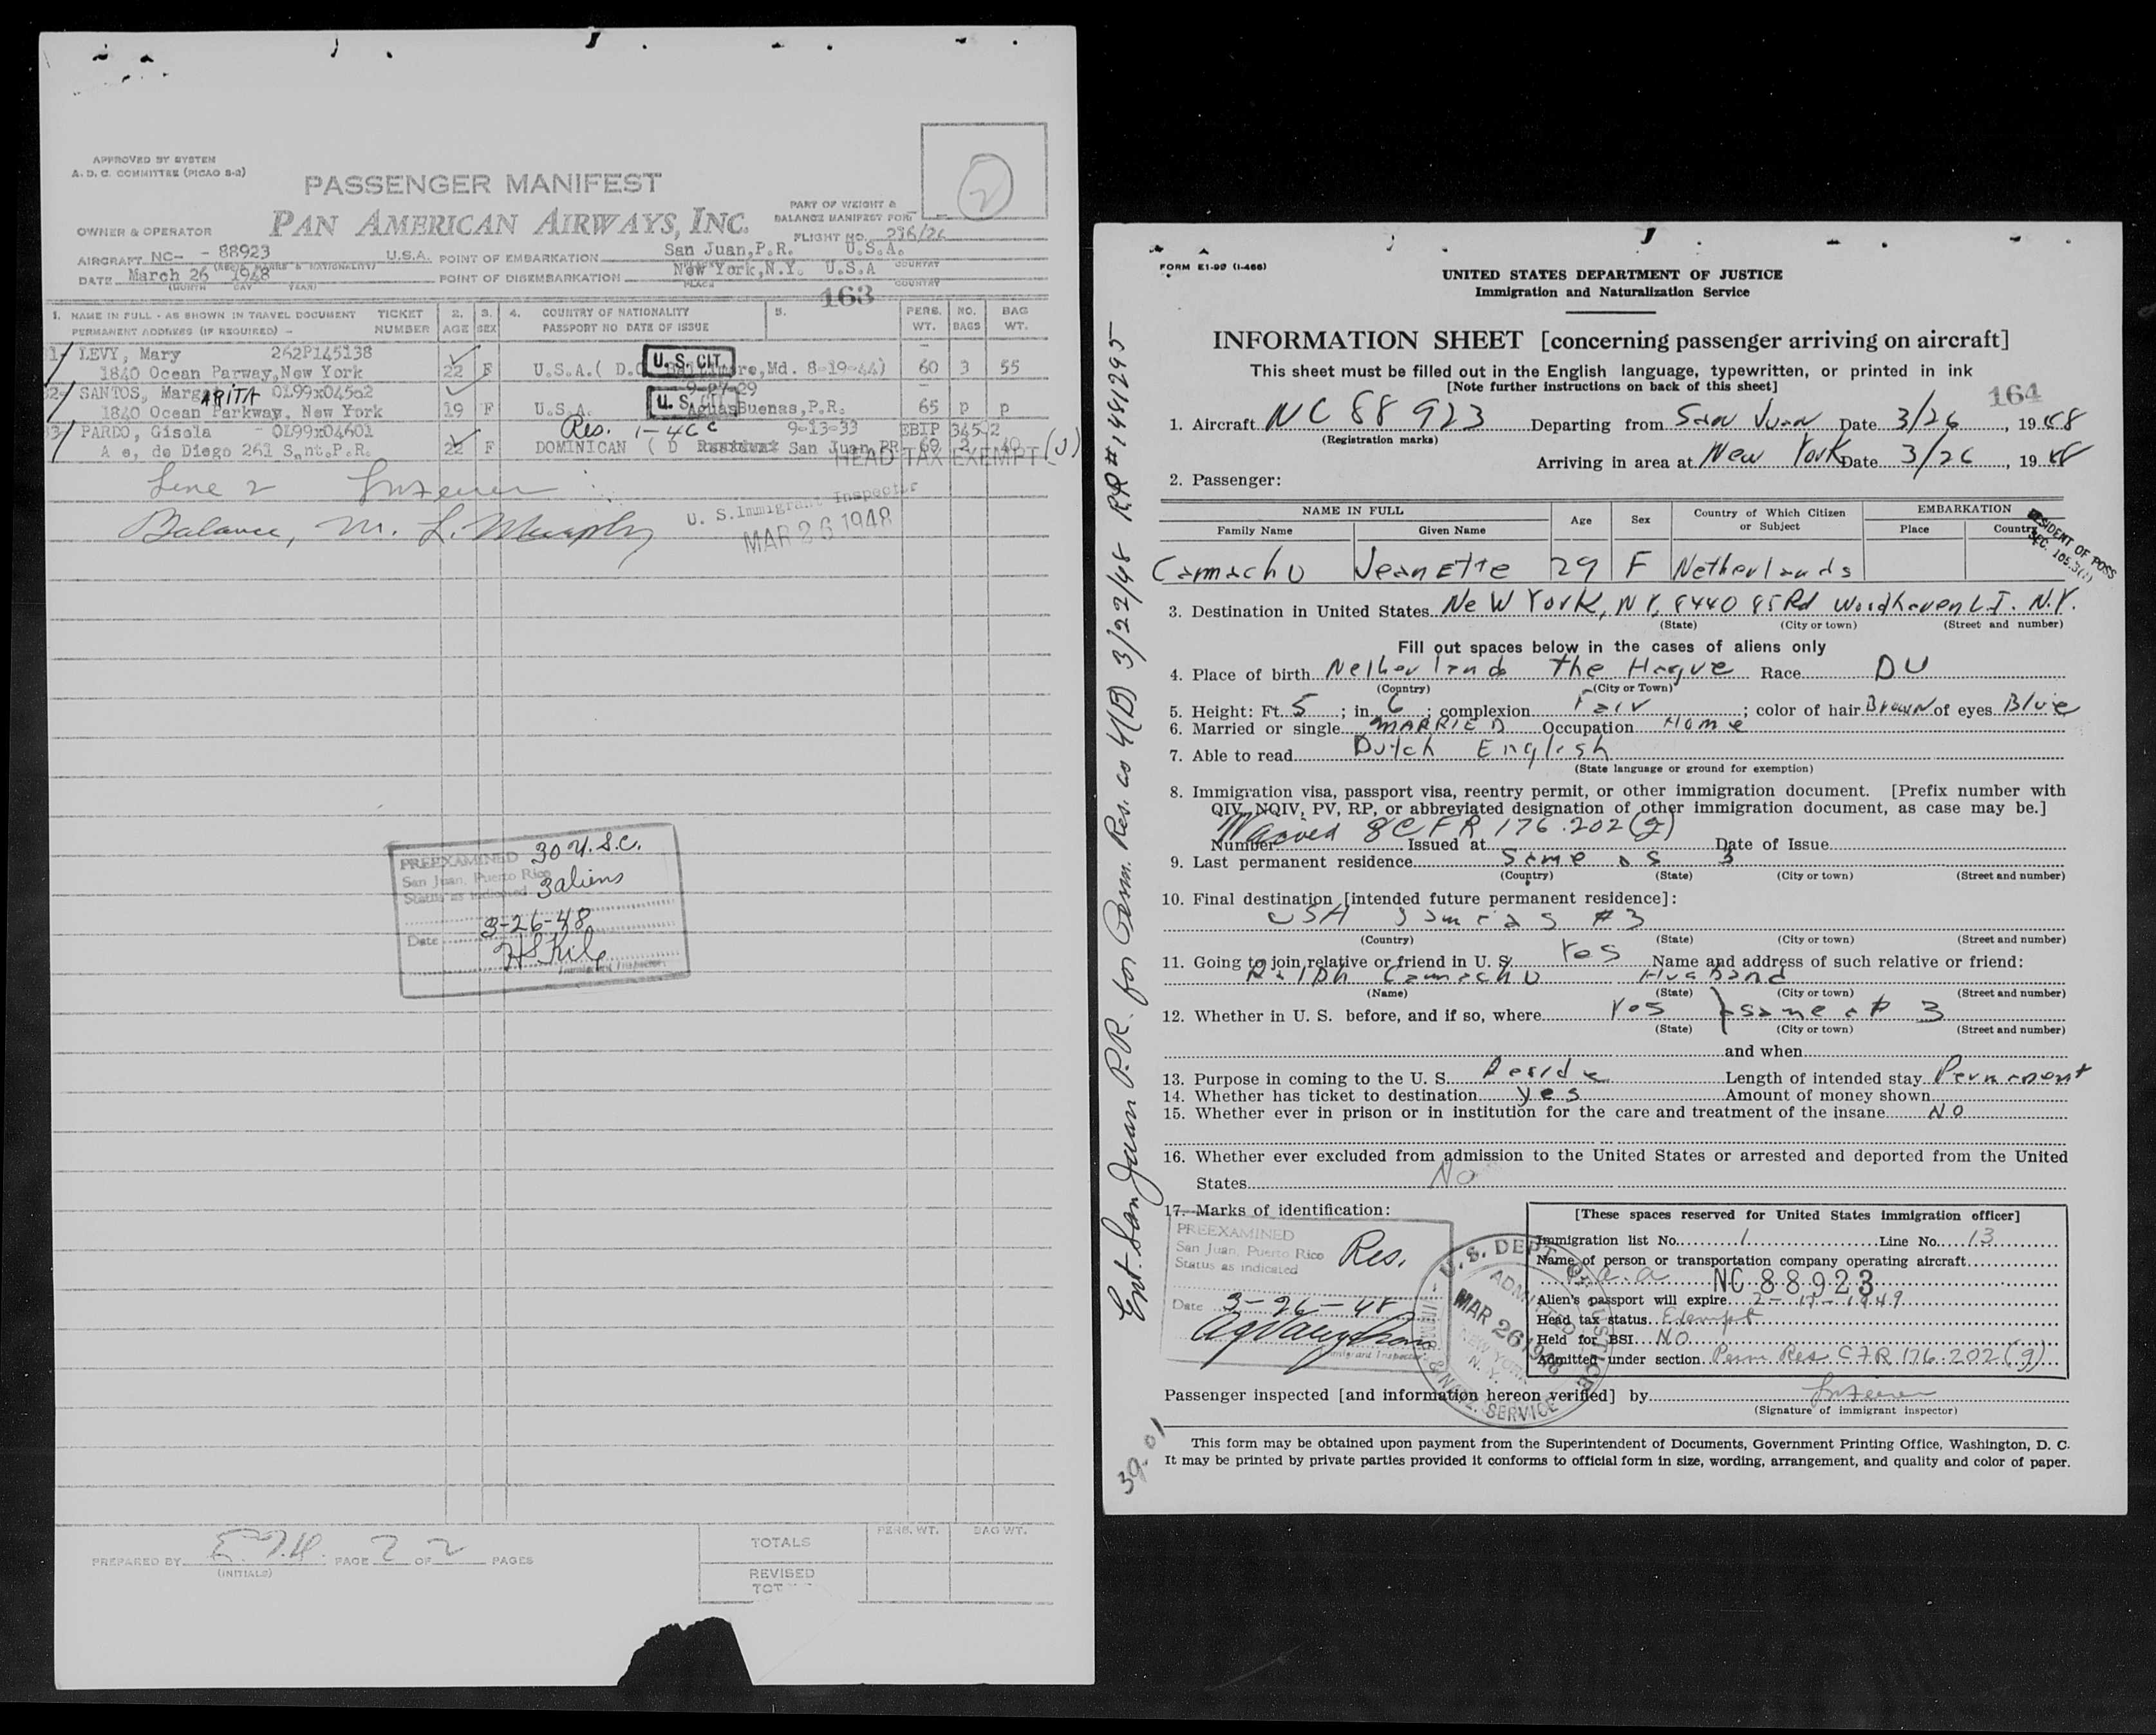 APPROVED BY SYSTEM
A. D. C. COMMITTEE (PICAO S-2)
PASSENGER MANIFEST
PAN AMERICAN AIRWAYS, INC.
2
PART OF WEIGHT &
BALANCE MANIFEST FOR
OWNER & OPERATOR
FLIGHT NO. 296/26
AIRCRAFT NC- - 88923 U.S.A. POINT OF EMBARKATION San Juan, P.R. U.S.A.
DATE March 26 1948 POINT OF DISEMBARKATION New York, N.Y. U.S.A
(MONTH DAY YEAR) PLACE COUNTRY
163
1. NAME IN FULL - AS SHOWN IN TRAVEL DOCUMENT TICKET 2. 3. 4. COUNTRY OF NATIONALITY 5. PERS. NO. BAG
PERMANENT ADDRESS (IF REQUIRED) - NUMBER AGE SEX PASSPORT NO DATE OF ISSUE WT. BAGS WT.
LEVY, Mary 262P145138
1840 Ocean Parway, New York 22 F U.S.A. ( D.O. Baltimore, Md. 8-19-44) 60 3 55
U. S. CIT.
SANTOS, MargARITA OL99x04502 9-27-29
1840 Ocean Parkway, New York 19 F U.S.A. Aguas Buenas, P.R. 65 p p
U. S. CIT.
PARDO, Gisela - OL99x04601 Res. 1-4CC 9-13-33 EBIP 34502
A e, de Diego 261 S,nt.P.R. 22 F DOMINICAN ( D Resident San Juan PR 69 2 40 (J)
HEAD TAX EXEMPT
Line 2
Balance, M. L. Murphy
U. S. Immigrant Inspector
MAR 26 1948
PREEXAMINED 30 U.S.C.
San Juan, Puerto Rico
Status as indicated 3 aliens
Date 3-26-48
Immigrant Inspector
PREPARED BY E.J.H. PAGE 2 OF 2 PAGES
(INITIALS)
PERS. WT. BAG WT.
TOTALS
REVISED
TOT
FORM E1-99 (I-466)
UNITED STATES DEPARTMENT OF JUSTICE
Immigration and Naturalization Service
INFORMATION SHEET [concerning passenger arriving on aircraft]
This sheet must be filled out in the English language, typewritten, or printed in ink
[Note further instructions on back of this sheet]
164
1. Aircraft NC 88923 Departing from San Juan Date 3/26, 1948
(Registration marks)
Arriving in area at New York Date 3/26, 1948
2. Passenger:
NAME IN FULL Age Sex Country of Which Citizen or Subject EMBARKATION
Family Name Given Name Place Country
RESIDENT OF POSS
SEC. 105.3(1)
Camacho Jeanette 29 F Netherlands
3. Destination in United States New York, NY, 8440 85 Rd Woodhaven L.I. N.Y.
(State) (City or town) (Street and number)
Fill out spaces below in the cases of aliens only
4. Place of birth Netherlands The Hague Race DU
(Country) (City or Town)
5. Height: Ft. 5; in. 6; complexion Fair; color of hair Brown of eyes Blue
6. Married or single MARRIED Occupation Home
7. Able to read Dutch English
(State language or ground for exemption)
8. Immigration visa, passport visa, reentry permit, or other immigration document. [Prefix number with
QIV, NQIV, PV, RP, or abbreviated designation of other immigration document, as case may be.]
Waived 8 CFR 176.202(g)
Number Issued at Date of Issue
9. Last permanent residence Same as 3
(Country) (State) (City or town) (Street and number)
10. Final destination [intended future permanent residence]:
USA Same as #3
(Country) (State) (City or town) (Street and number)
11. Going to join relative or friend in U. S. Yes Name and address of such relative or friend:
Ralph Camacho Husband
(Name) (State) (City or town) (Street and number)
12. Whether in U. S. before, and if so, where Yes } same # 3
(State) (City or town) (Street and number)
and when
13. Purpose in coming to the U. S. Reside Length of intended stay Permanent
14. Whether has ticket to destination yes Amount of money shown
15. Whether ever in prison or in institution for the care and treatment of the insane NO
16. Whether ever excluded from admission to the United States or arrested and deported from the United
States No
17. Marks of identification:
PREEXAMINED
San Juan, Puerto Rico Res.
Status as indicated
Date 3-26-48
Immigrant Inspector
U. S. DEPT. OF JUSTICE
ADMITTED
MAR 26 1948
NEW YORK
N. Y.
IMMIG. & NATZ. SERVICE
[These spaces reserved for United States immigration officer]
Immigration list No. 1 Line No. 13
Name of person or transportation company operating aircraft
P.a.a NC 88923
Alien's passport will expire 2-17-1949
Head tax status Exempt
Held for BSI NO
Admitted under section Perm Res CFR 176.202(g)
Passenger inspected [and information hereon verified] by
(Signature of immigrant inspector)
This form may be obtained upon payment from the Superintendent of Documents, Government Printing Office, Washington, D. C.
It may be printed by private parties provided it conforms to official form in size, wording, arrangement, and quality and color of paper.
Ent. San Juan P.R. for Perm. Res. as 4(B) 3/22/48 RR# 1481295
39-01